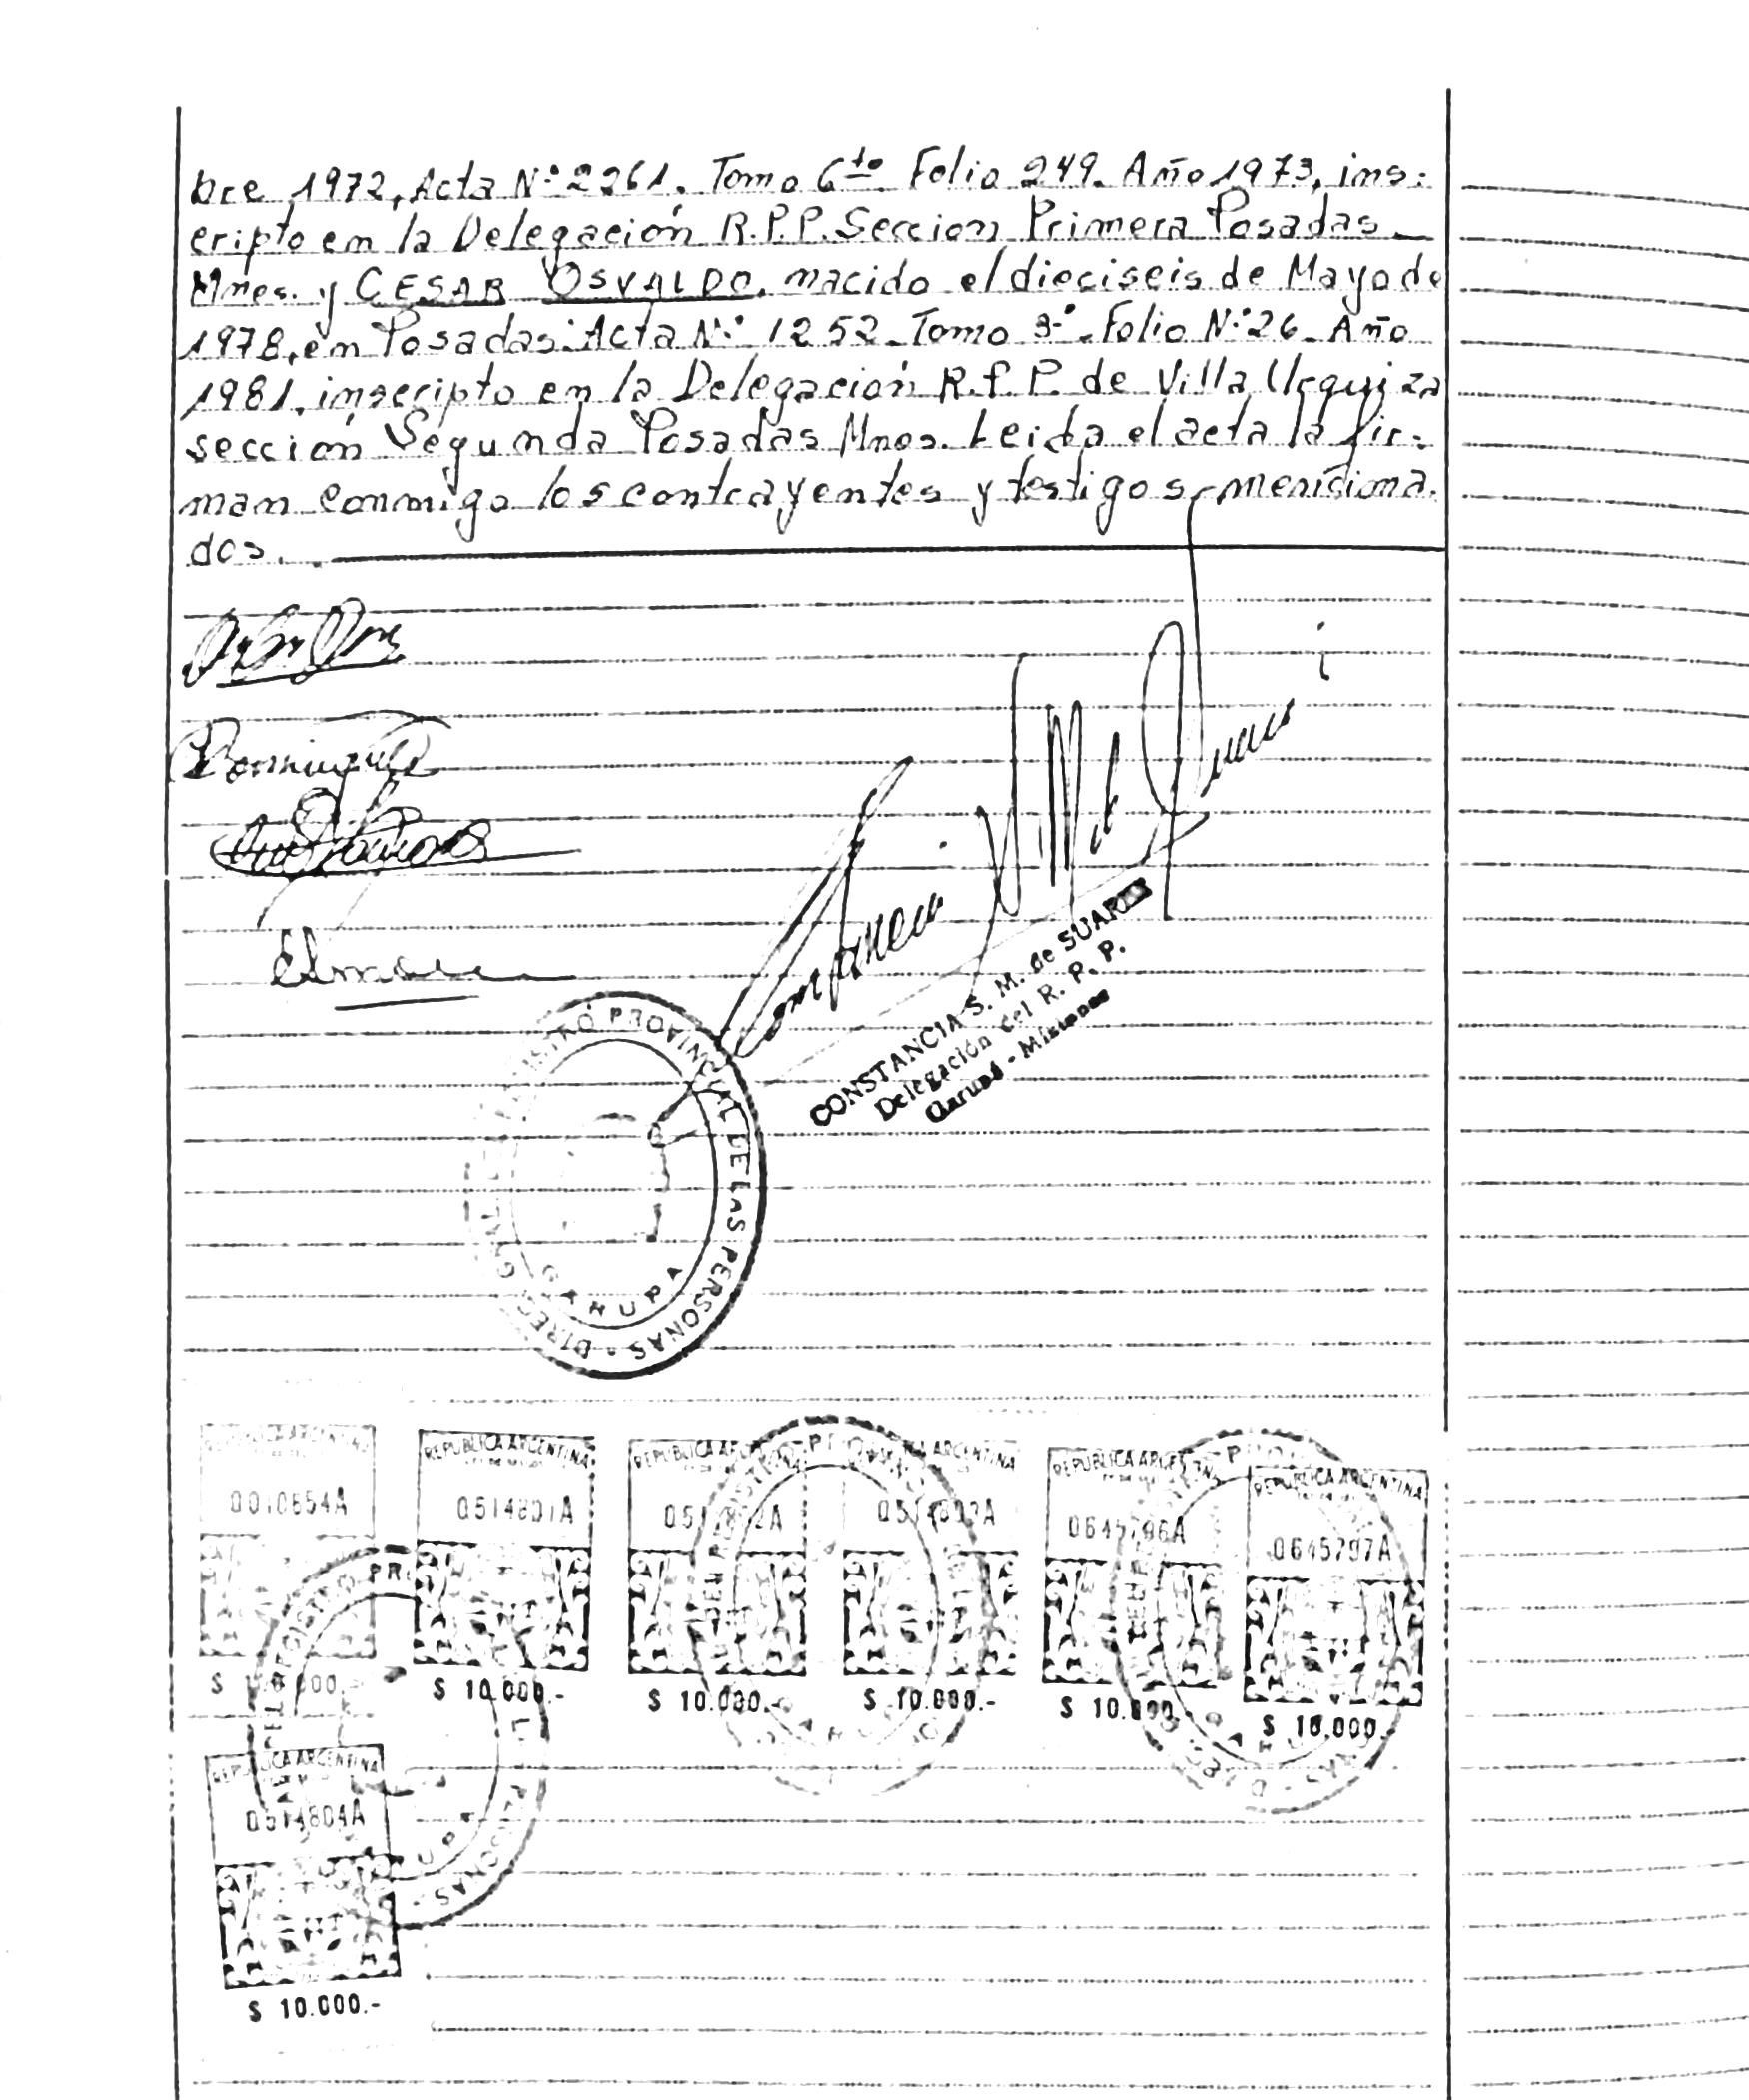 bre 1972, Acta N° 2261. Tomo 6to. Folio 249. Año 1973, ins-
cripto en la Delegación R.P.P. Seccion Primera Posadas
Mnes. y CESAR OSVALDO. nacido el dieciseis de Mayo de
1978, en Posadas. Acta N° 1252. Tomo 3°. Folio N° 26. Año
1981. inscripto en la Delegación R.P.P. de Villa Urquiza
sección Segunda Posadas Mnes. Leida el acta la fir-
man conmigo los contrayentes y testigos menciona-
dos.
CONSTANCIA S. M. de SUAREZ
Delegación del R. P. P.
Garupá - Misiones
REGISTRO PROVINCIAL DE LAS PERSONAS
GARUPA
REPUBLICA ARGENTINA
0010654A
REPUBLICA ARGENTINA
0514801A
$ 10.000.-
REPUBLICA ARGENTINA
$ 10.000.-
ARGENTINA
$ 10.000.-
REPUBLICA ARGENTINA
0645796A
$ 10.000
REPUBLICA ARGENTINA
0645797A
$ 10.000.-
REPUBLICA ARGENTINA
0514804A
$ 10.000.-